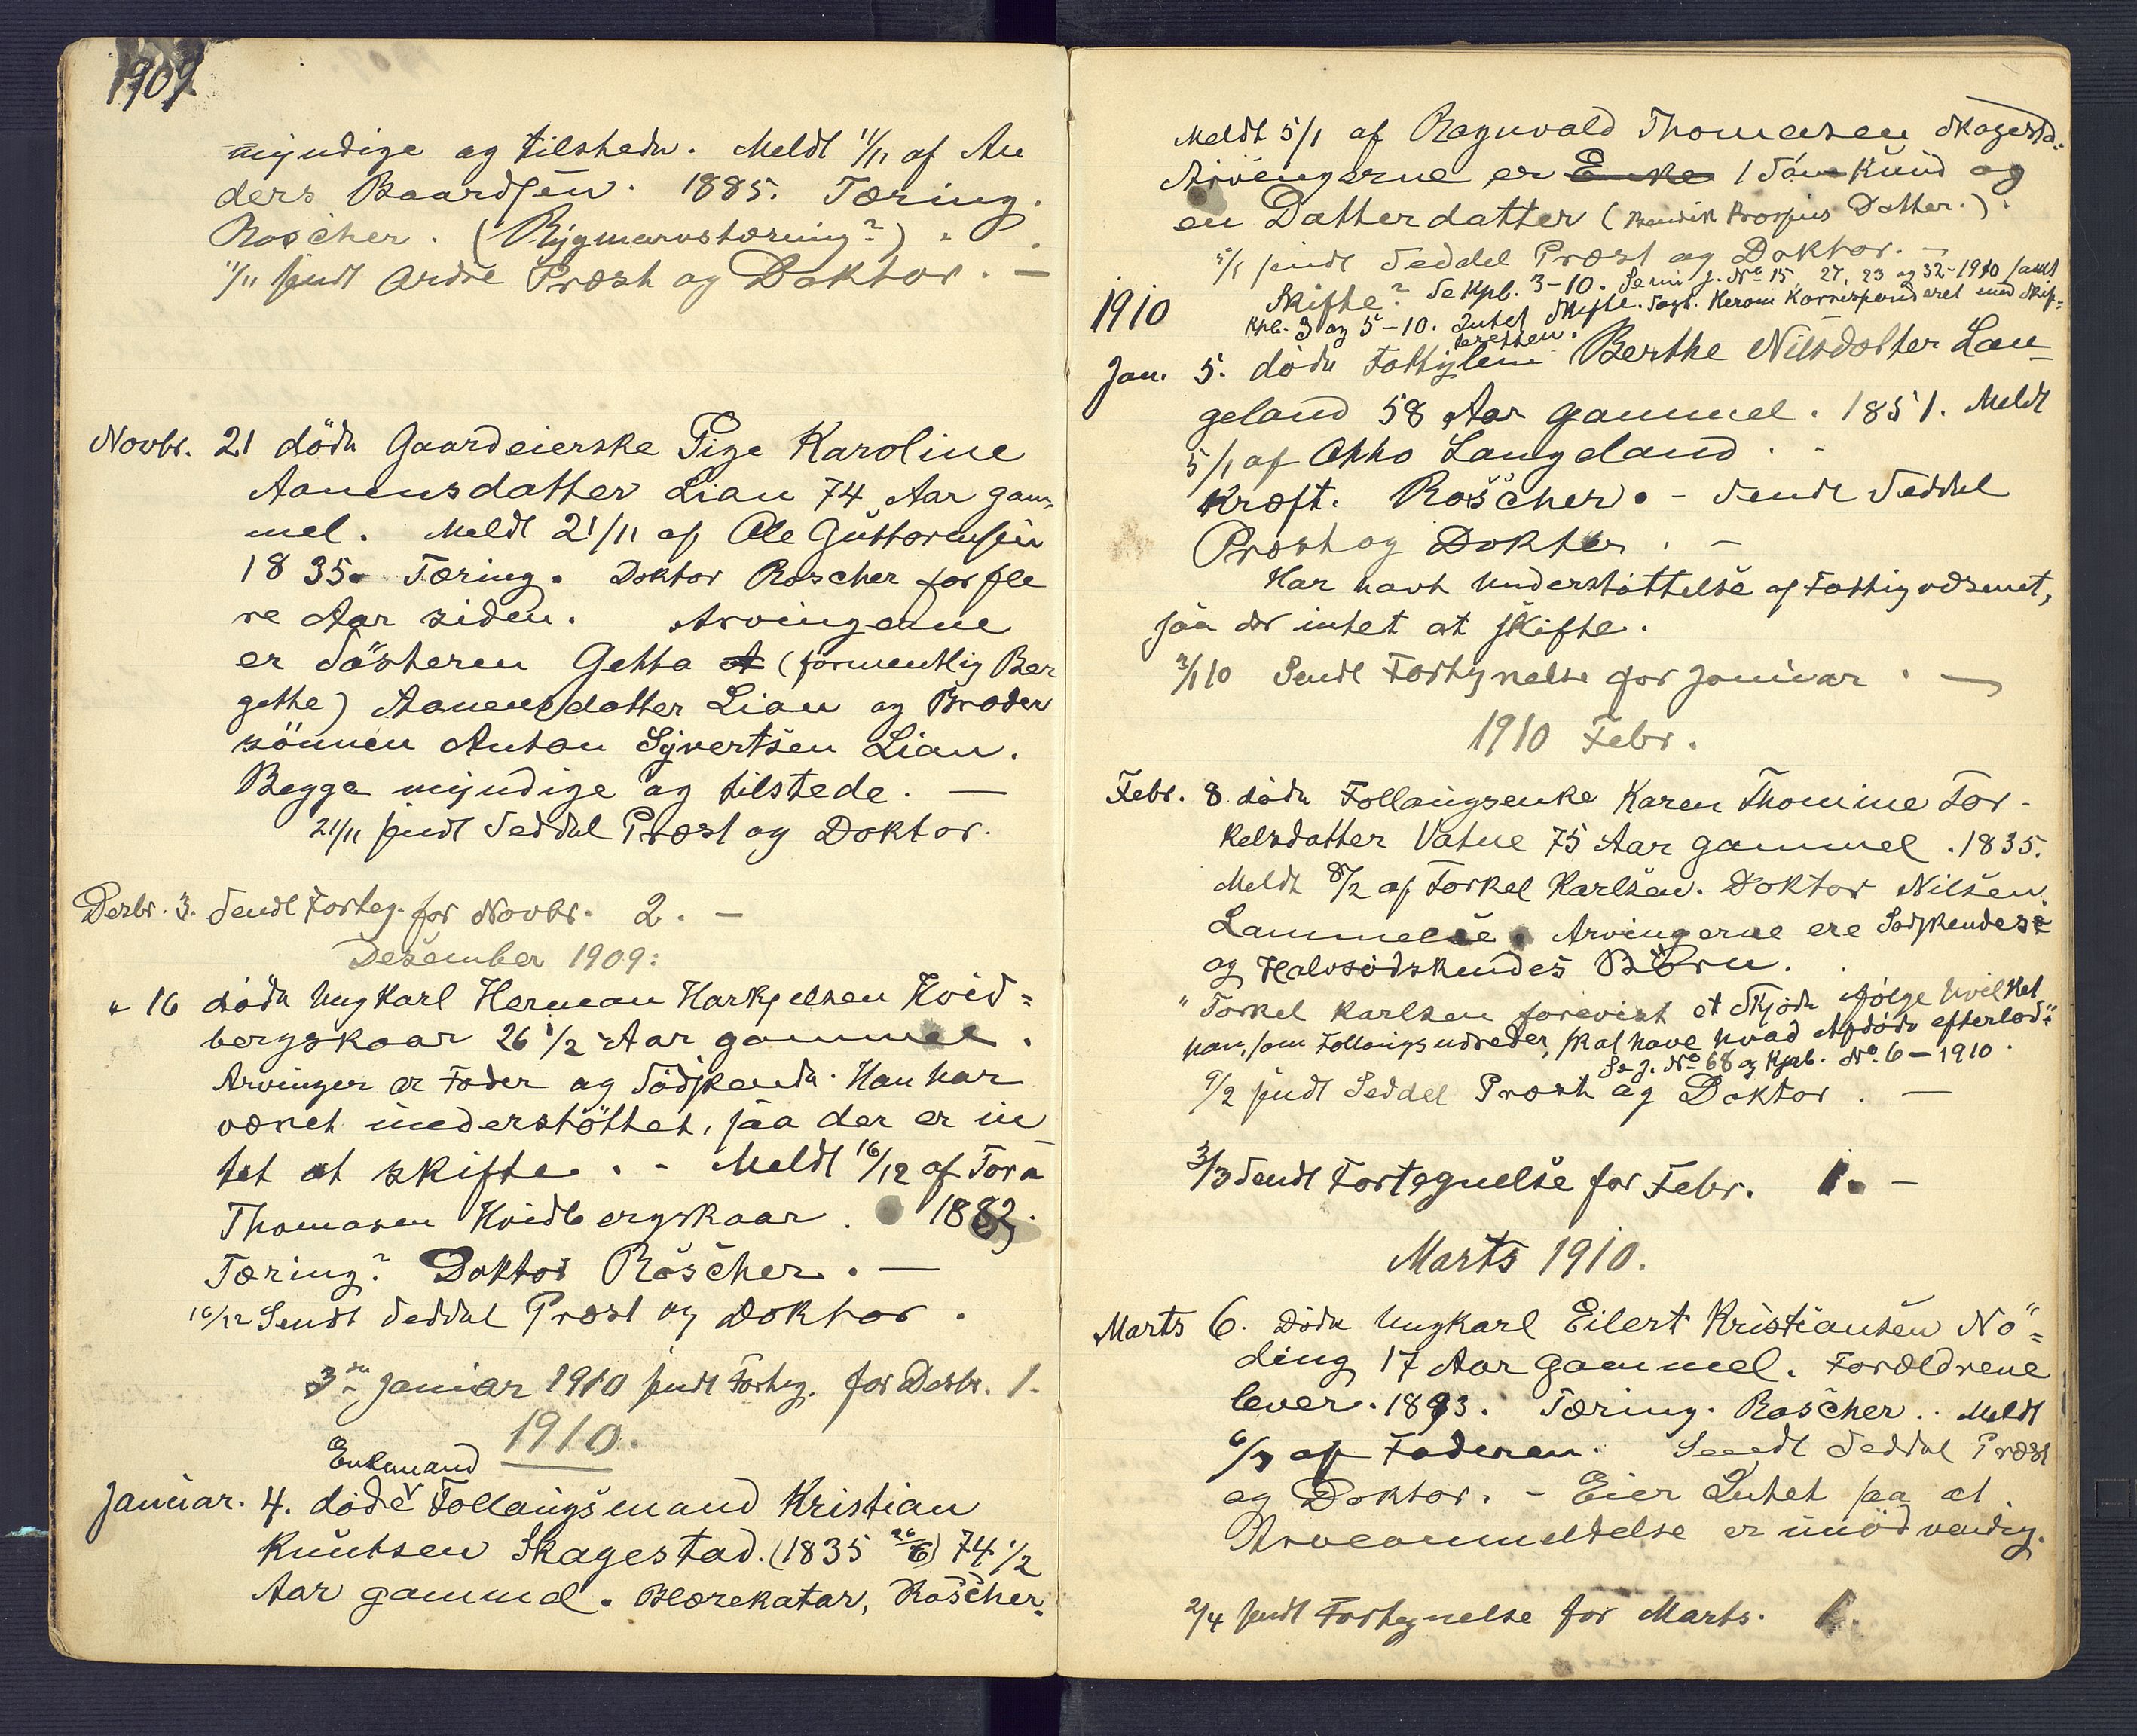 1909
myndige og tilstede. Meldt 11/11 af An
ders Baardsen. 1885. Tæring.
Roscher. (Rygmarvstæring?).
11/11 sendt Ordre Præst og Doktor. —
Novbr. 21 döde Gaardeierske Pige Karoline
Aanensdatter Lian 74 Aar gam-
mel. Meldt 21/11 af Ole Guttormsen
1835. Tæring. Doktor Roscher for fle
re Aar siden. Arvingerne
er Sösteren Getta (formentlig Ber
gette) Aanensdatter Lian og Broder
sönnen Anton Syvertsen Lian.
Begge myndige og tilstede. —
21/11 sendt Seddel Præst og Doktor.
Desbr. 3. Sendt Forteg. for Novbr. 2. —
Desember 1909:
" 16 döde Ungkarl Herman Harkjelsen Kvid=
bergskaar 26 1/2 Aar gammel.
Arvinger er Fader og Södskende. Han har
været understöttet, saa der er in
tet at skifte. - Meldt 16/12 af Tora
Thomasen Kvidbergskaar. 1883.
Tæring? Doktor Röscher. —
16/12 Sendt Seddel Præst og Doktor.
3die Januar 1910 sendt Forteg. for Desbr. 1.
1910.
Enkemand
Januar. 4. döde Follaugsmand Kristian
Knutsen Skagestad. (1835 26/6) 74 1/2
Aar gammel. Blærekatar, Röscher.
Meldt 5/1 af Ragnvald Thomasen Skagestd.
Arvingerne er Enke 1 Sön Knud og
en Datterdatter ( Datter.).
5/1 sendt Seddel Præst og Doktor. —
1910 Skifte? Se Kpb. 3-10. Se min j. No 15, 27, 23 og 32-1910 samt
Kpb. 3 og 5-10. Intet Skifte. Herom Korresponderet med Skif=
teretten.
Jan. 5. döde Fattiglem Berthe Nilsdatter Lan
geland 58 Aar gammel. 1851. Meldt
5/1 af Otto Langeland.
Kræft. Röscher. - Sendt Seddel
Præst og Doktor. —
Har havt Understöttelse af Fattigvæsenet,
saa der intet at skifte.
3/1 10 Sendt Fortegnelse for Januar. —
1910 Febr.
Febr. 8 döde Follaugsenke Karen Thomine Tor-
kelsdatter Vatne 75 Aar gammel. 1835.
Meldt 8/2 af Torkel Karlsen. Doktor Nilsen.
Lammelse. Arvingerne ere Södskendese
og Halvsödskendes Börn.
" Torkel Karlsen forevist et Skjöde ifölge hvilket
han, som Follaugsudreder, skal have hvad Afdöde efterlod"
Se j. No 68 og Kpb. No. 6 - 1910.
9/2 sendt Seddel Præst og Doktor. —
3/3 Sendt Fortegnelse for Febr. 1. —
Marts 1910.
Marts 6. Döde Ungkarl Eilert Kristiansen Nö=
ding 17 Aar gammel. Forældrene
lever. 1893. Tæring. Roscher. Meldt
6/3 af Faderen. Sendt Seddel Præst
og Doktor. - Eier Intet saa at
Arveanmeldelse er unödvendig.
2/4 sendt Fortegnelse for Marts. 1.